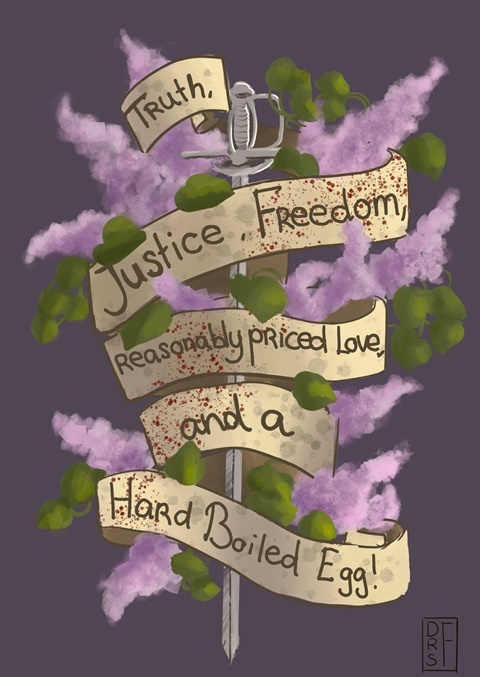 Truth,
Justice, Freedom,
reasonably priced Love,
and a
Hard Boiled Egg!
DF
RS